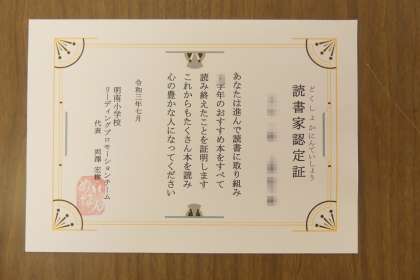 どくしょかにんていしょう
読書家認定証
あなたは進んで読書に取り組み
学年のおすすめ本をすべて
読み終えたことを証明します
これからもたくさん本を読み
心の豊かな人になってください
令和三年七月
明南小学校
リーディングプロモーションチーム
代表